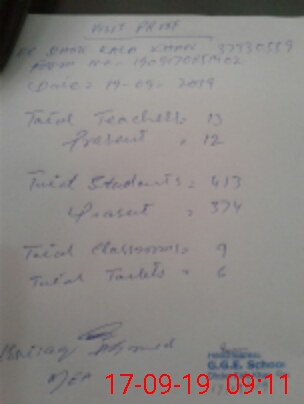 VISIT PROOF
KALA KHAN 37330359
Date = 19-09-2019
Total Teachers = 13
Present = 12
Total Students = 413
Present = 374
Total Classrooms = 9
Total Toilets = 6
Ahmed
MEA
G.G.E. School
17-09-19 09:11